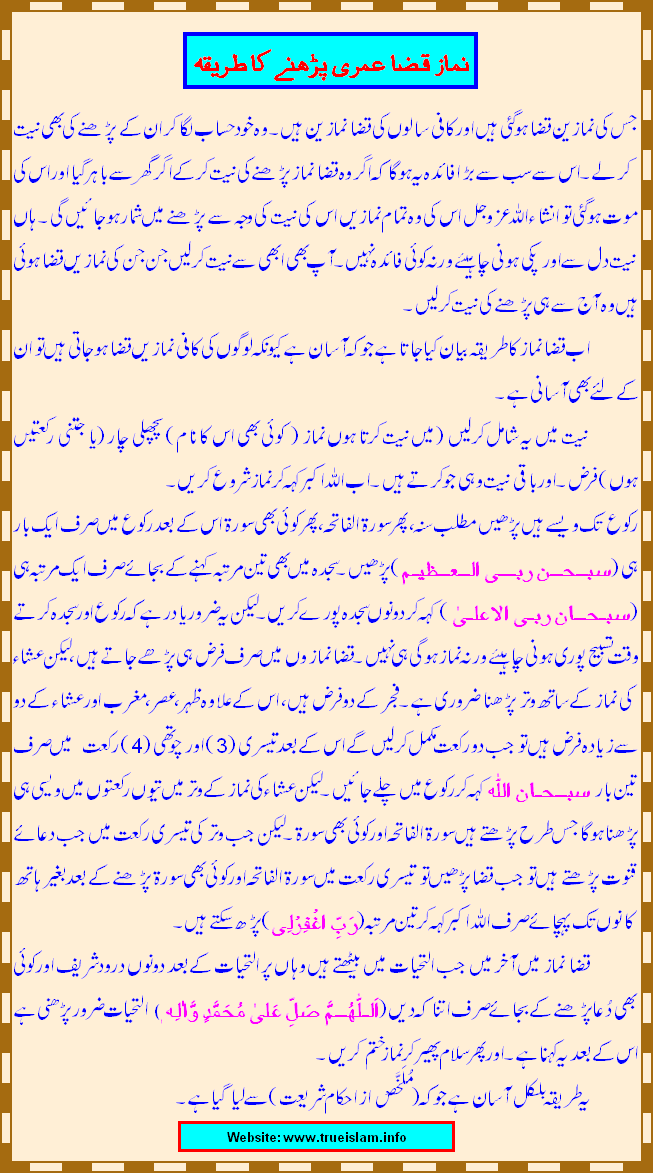 نماز قضا عمری پڑھنے کا طریقہ
جس کی نمازین قضا ہوگئی ہیں اور کافی سالوں کی قضا نمازین ہیں۔ وہ خود حساب لگا کر ان کے پڑھنے کی بھی نیت
کر لے۔ اس سے سب سے بڑا فائدہ یہ ہوگا کہ اگر وہ قضا نماز پڑھنے کی نیت کر کے اگر گھر سے باہر گیا اور اس کی
موت ہوگئی تو انشاء اللہ عزوجل اس کی وہ تمام نمازیں اس کی نیت کی وجہ سے پڑھنے میں شمار ہو جائیں گی ۔ ہاں
نیت دل سے اور پکی ہونی چاہیئے ورنہ کوئی فائدہ نہیں۔ آپ بھی ابھی سے نیت کرلیں جن جن کی نمازیں قضا ہوئی
ہیں وہ آج سے ہی پڑھنے کی نیت کرلیں ۔
اب قضا نماز کا طریقہ بیان کیا جاتا ہے جو کہ آسان ہے کیونکہ لوگوں کی کافی نمازیں قضا ہو جاتی ہیں تو ان
کے لئے بھی آسانی ہے ۔
نیت میں یہ شامل کرلیں (میں نیت کرتا ہوں نماز ( کوئی بھی اس کا نام ) پچھلی چار (یا جتنی رکعتیں
ہوں) فرض ۔ اور باقی نیت وہی جو کرتے ہیں ۔ اب اللہ اکبر کہہ کر نماز شروع کریں ۔
رکوع تک ویسے ہیں پڑھیں مطلب سنہ، پھر سورۃ الفاتحہ، پھر کوئی بھی سورۃ اس کے بعد رکوع میں صرف ایک بار
ہی (سبحن ربی العظیم) پڑھیں۔ سجدہ میں بھی تین مرتبہ کہنے کے بجائے صرف ایک مرتبہ ہی
(سبحان ربی الاعلیٰ ) کہہ کر دونوں سجدہ پورے کریں۔ لیکن یہ ضرور یاد رہے کہ رکوع اور سجدہ کرتے
وقت تسبیح پوری ہونی چاہیئے ورنہ نماز ہوگی ہی نہیں ۔ قضا نمازوں میں صرف فرض ہی پڑھے جاتے ہیں، لیکن عشاء
کی نماز کے ساتھ وتر پڑھنا ضروری ہے۔ فجر کے دو فرض ہیں، اس کے علاوہ ظہر، عصر، مغرب اور عشاء کے دو
سے زیادہ فرض ہیں تو جب دو رکعت مکمل کرلیں گے اس کے بعد تیسری (3) اور چوتھی (4) رکعت میں صرف
تین بار سبحان اللّٰہ کہہ کر رکوع میں چلے جائیں ۔ لیکن عشاء کی نماز کے وتر میں تیوں رکعتوں میں ویسی ہی
پڑھنا ہوگا جس طرح پڑھتے ہیں سورۃ الفاتحہ اور کوئی بھی سورۃ ۔ لیکن جب وتر کی تیسری رکعت میں جب دعائے
قنوت پڑھتے ہیں تو جب قضا پڑھیں تو تیسری رکعت میں سورۃ الفاتحہ اور کوئی بھی سورۃ پڑھنے کے بعد بغیر ہاتھ
کانوں تک پہچائے صرف اللہ اکبر کہہ کر تین مرتبہ (رَبِّ اغْفِرْلِی) پڑھ سکتے ہیں ۔
قضا نماز میں آخر میں جب التحیات میں بیٹھتے ہیں وہاں پر التحیات کے بعد دونوں درود شریف اور کوئی
بھی دُعا پڑھنے کے بجائے صرف اتنا کہ دیں (اَللّٰھُمَّ صَلِّ عَلیٰ مُحَمَّدٍ وَّاٰلِهِ ) التحیات ضرور پڑھنی ہے
اس کے بعد یہ کہنا ہے ۔ اور پھر سلام پھیر کر نماز ختم کریں ۔
یہ طریقہ بلکل آسان ہے جو کہ (مُلَخَّص از احکام شریعت) سے لیا گیا ہے ۔
Website: www.trueislam.info